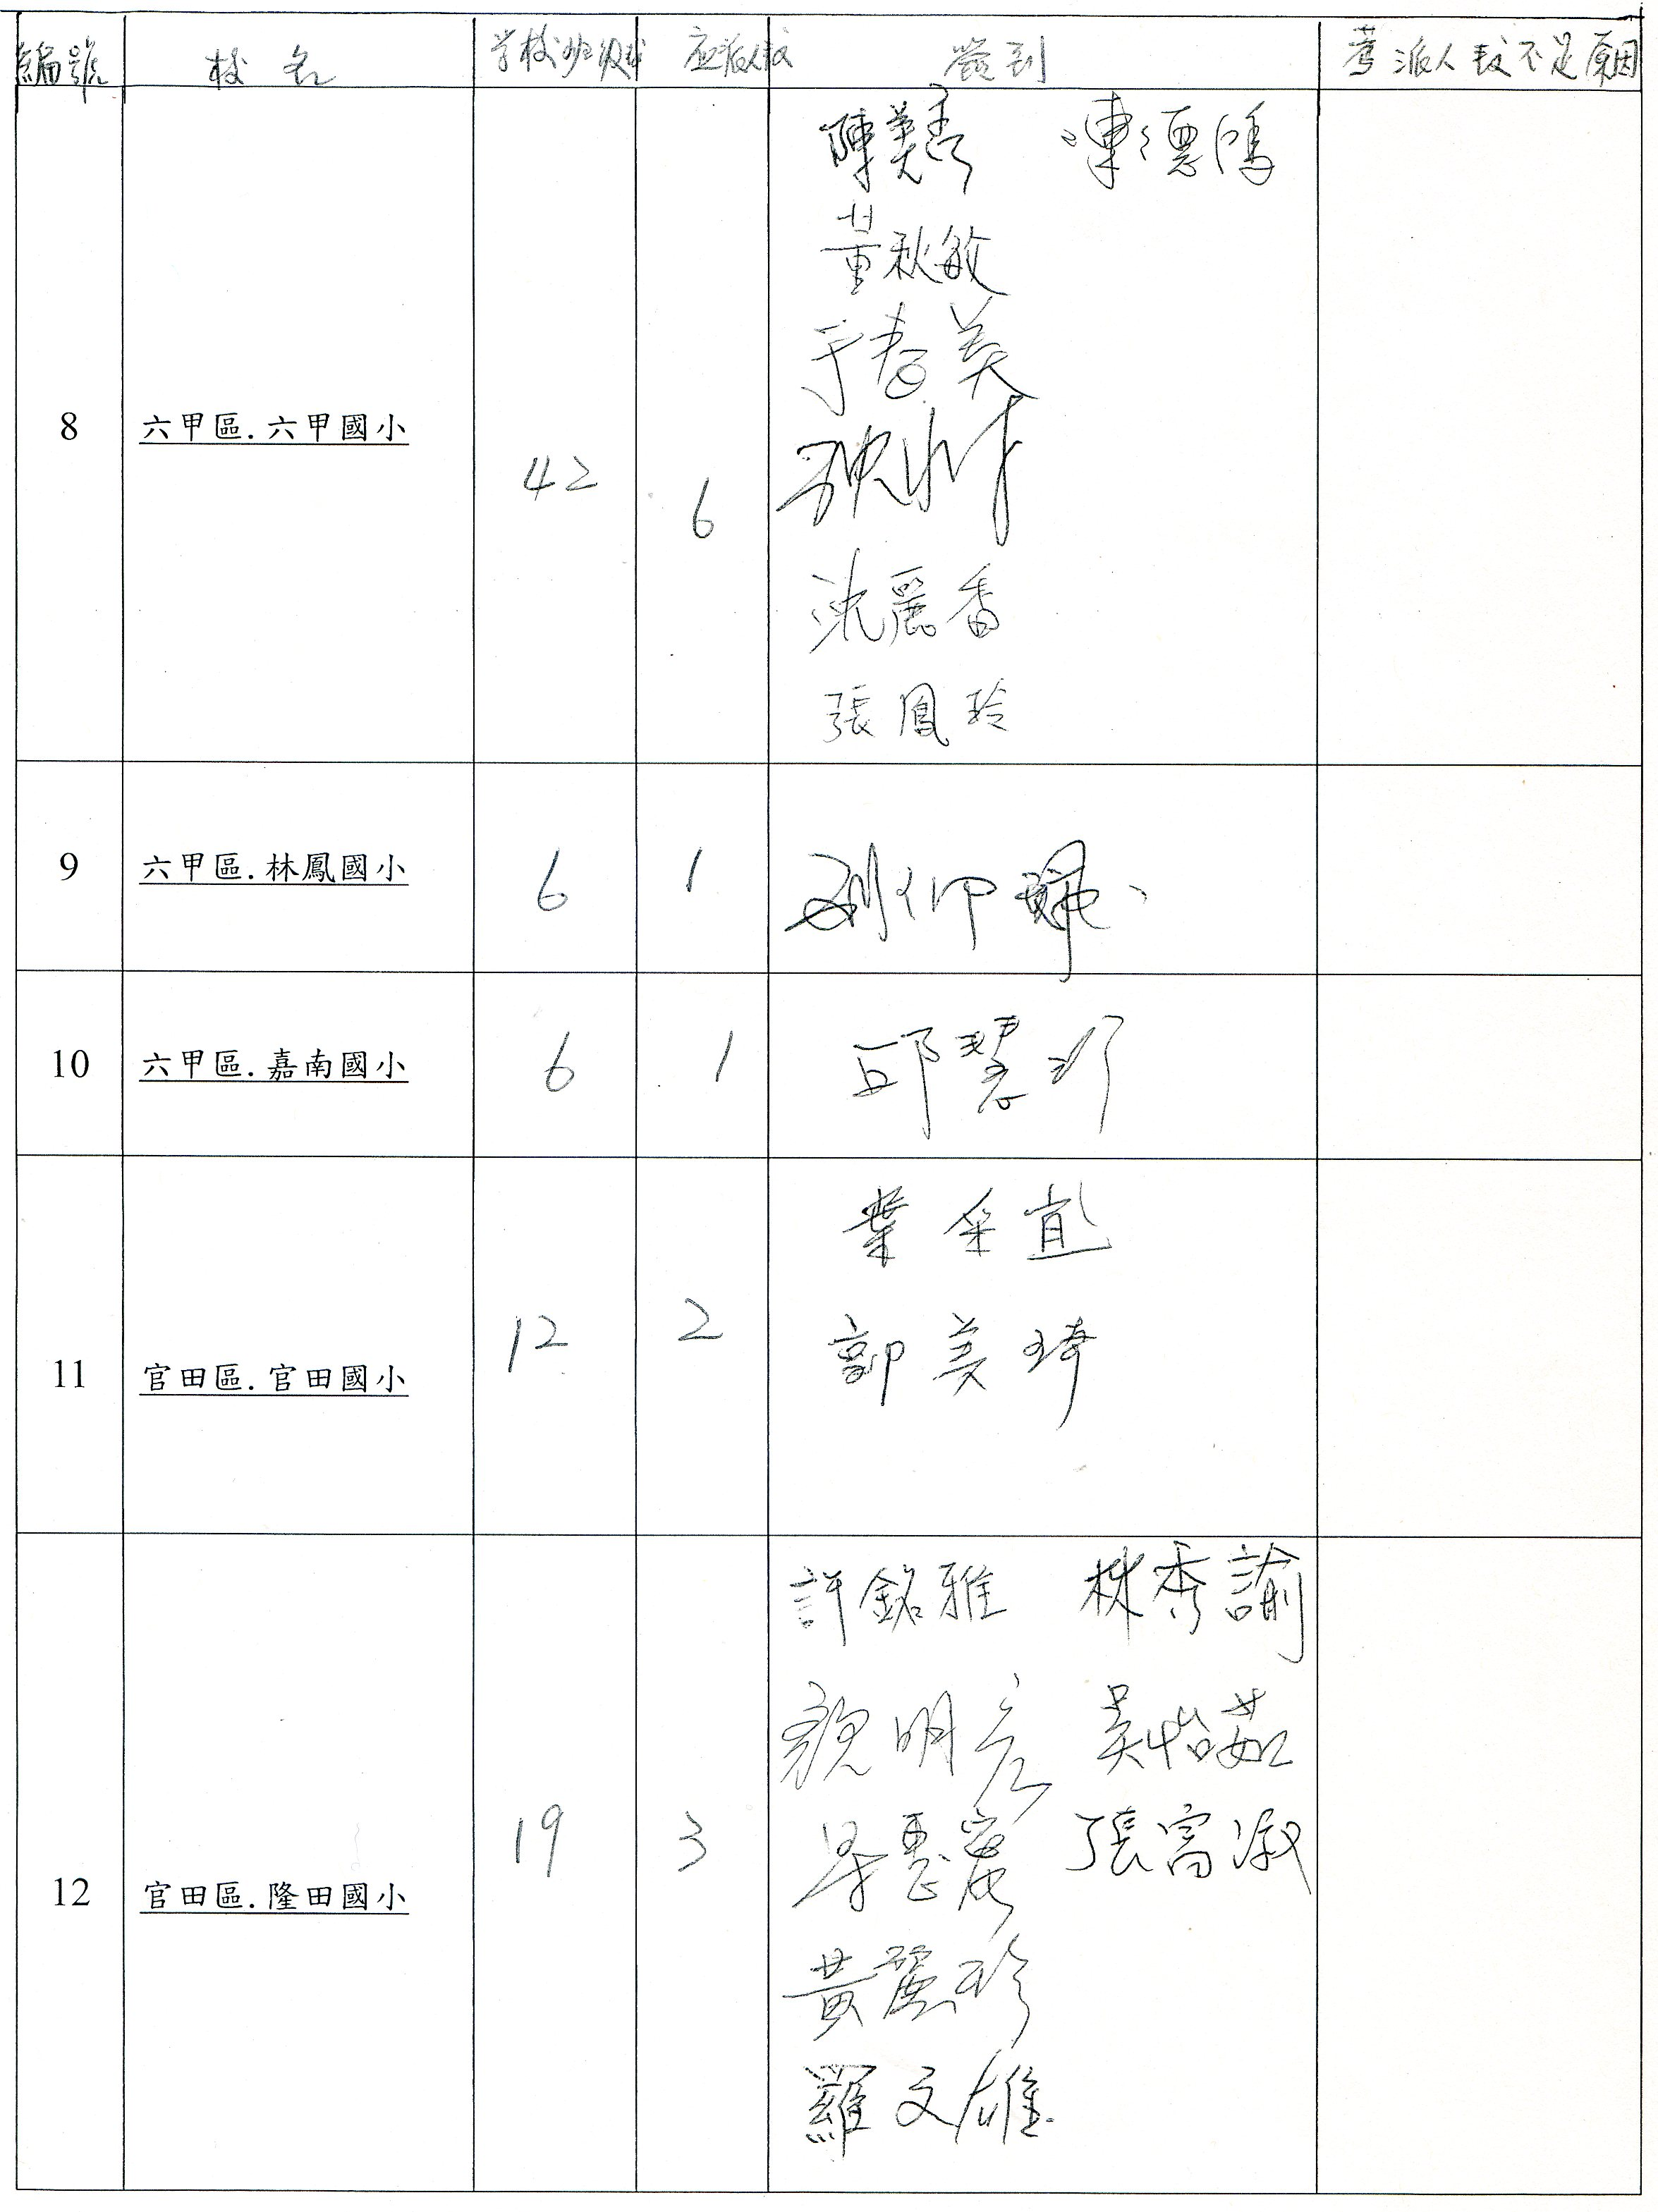 編號 校名 学校班级数 应派人数 簽到 若派人数不足原因
8 六甲區.六甲國小 42 6
陳美秀 陳德鴻
董秋敏
于春美
沈麗香
張鳳玲
9 六甲區.林鳳國小 6 1
劉仰
10 六甲區.嘉南國小 6 1
邱慧珍
11 官田區.官田國小 12 2
葉采宜
郭美琦
12 官田區.隆田國小 19 3
許銘雅 林秀諭
顏明彥 吳怡茹
張富淑
黃麗珍
羅文雄